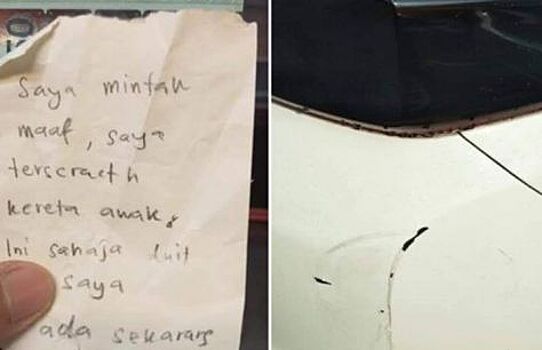 Saya mintak
maaf, saya
terscracth
kereta awak.
Ini sahaja duit
saya
ada sekarang